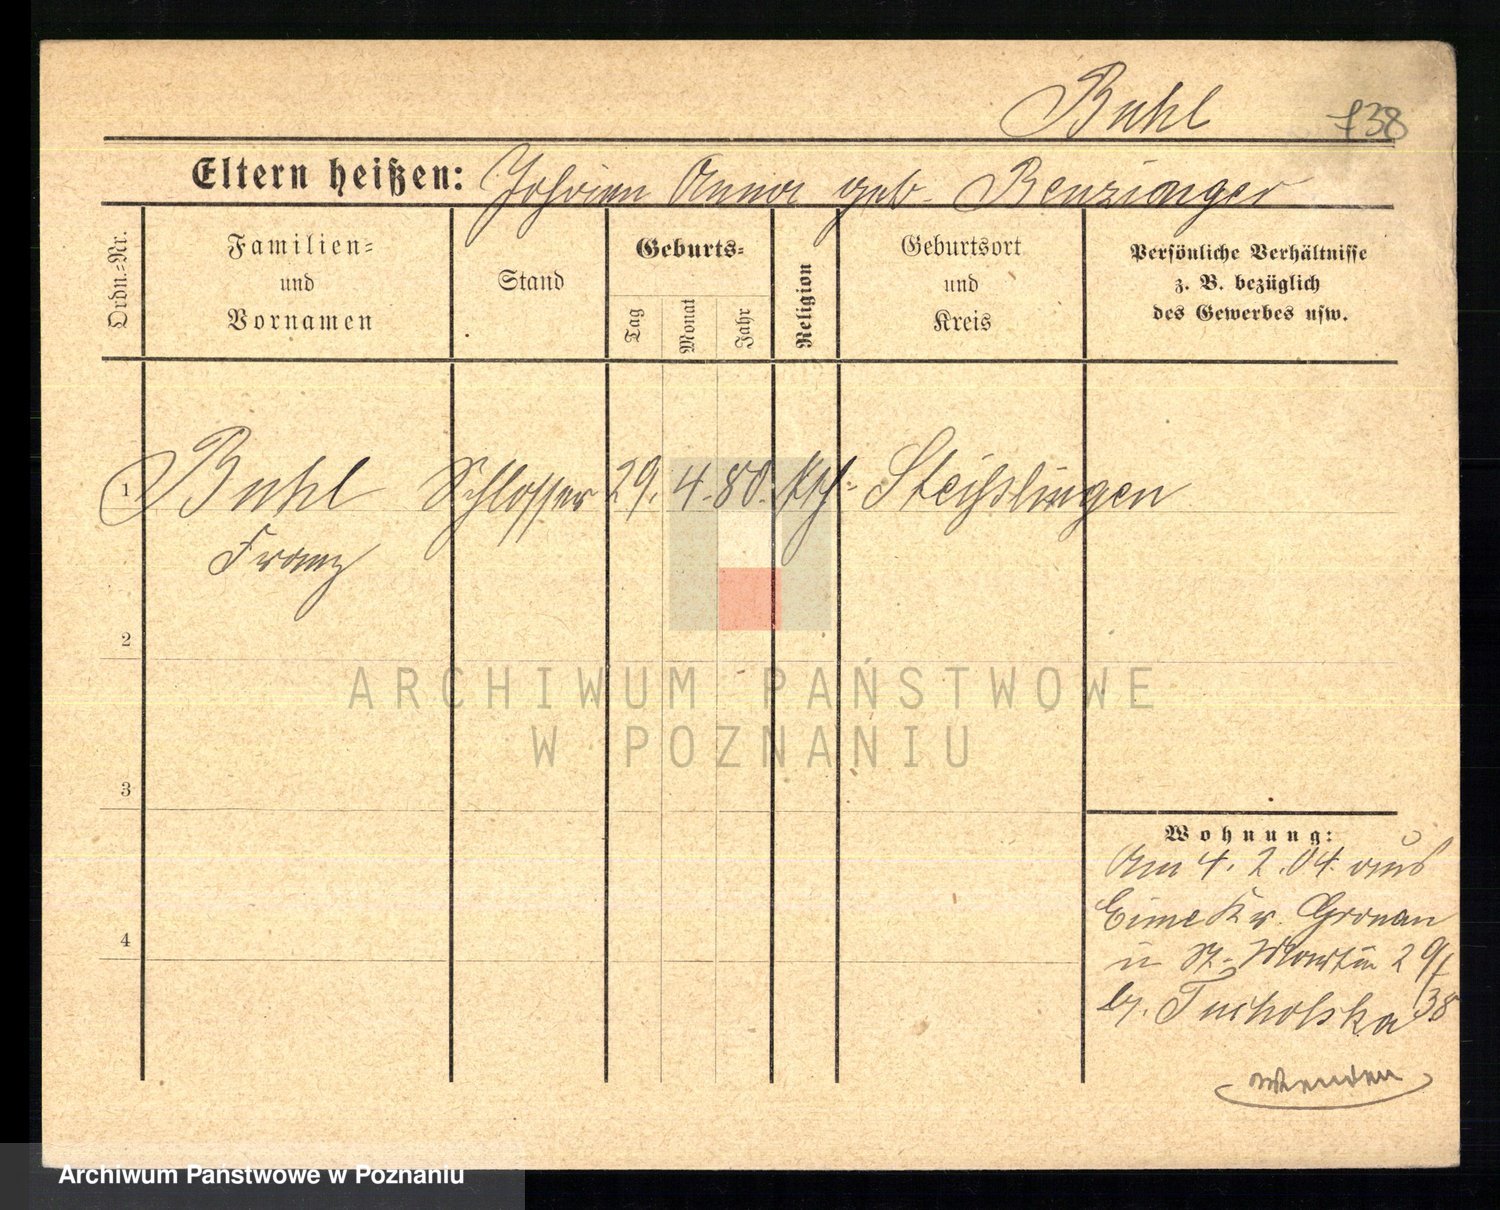 Buhl 738
Eltern heißen: Johann Anna geb. Benzinger
Ordn.-Nr.
Familien-
und
Vornamen
Stand
Geburts-
Tag
Monat
Jahr
Religion
Geburtsort
und
Kreis
Persönliche Verhältnisse
z. B. bezüglich
des Gewerbes usw.
1 Buhl Schlosser 29. 4. 80. kth. Steißlingen
Franz
2
ARCHIWUM PAŃSTWOWE
W POZNANIU
3
4
Wohnung:
Am 4. 2. 04. aus
Eime Kr. Gronau
n St. Martin 29/
38
by. Tucholska
wenden
Archiwum Państwowe w Poznaniu